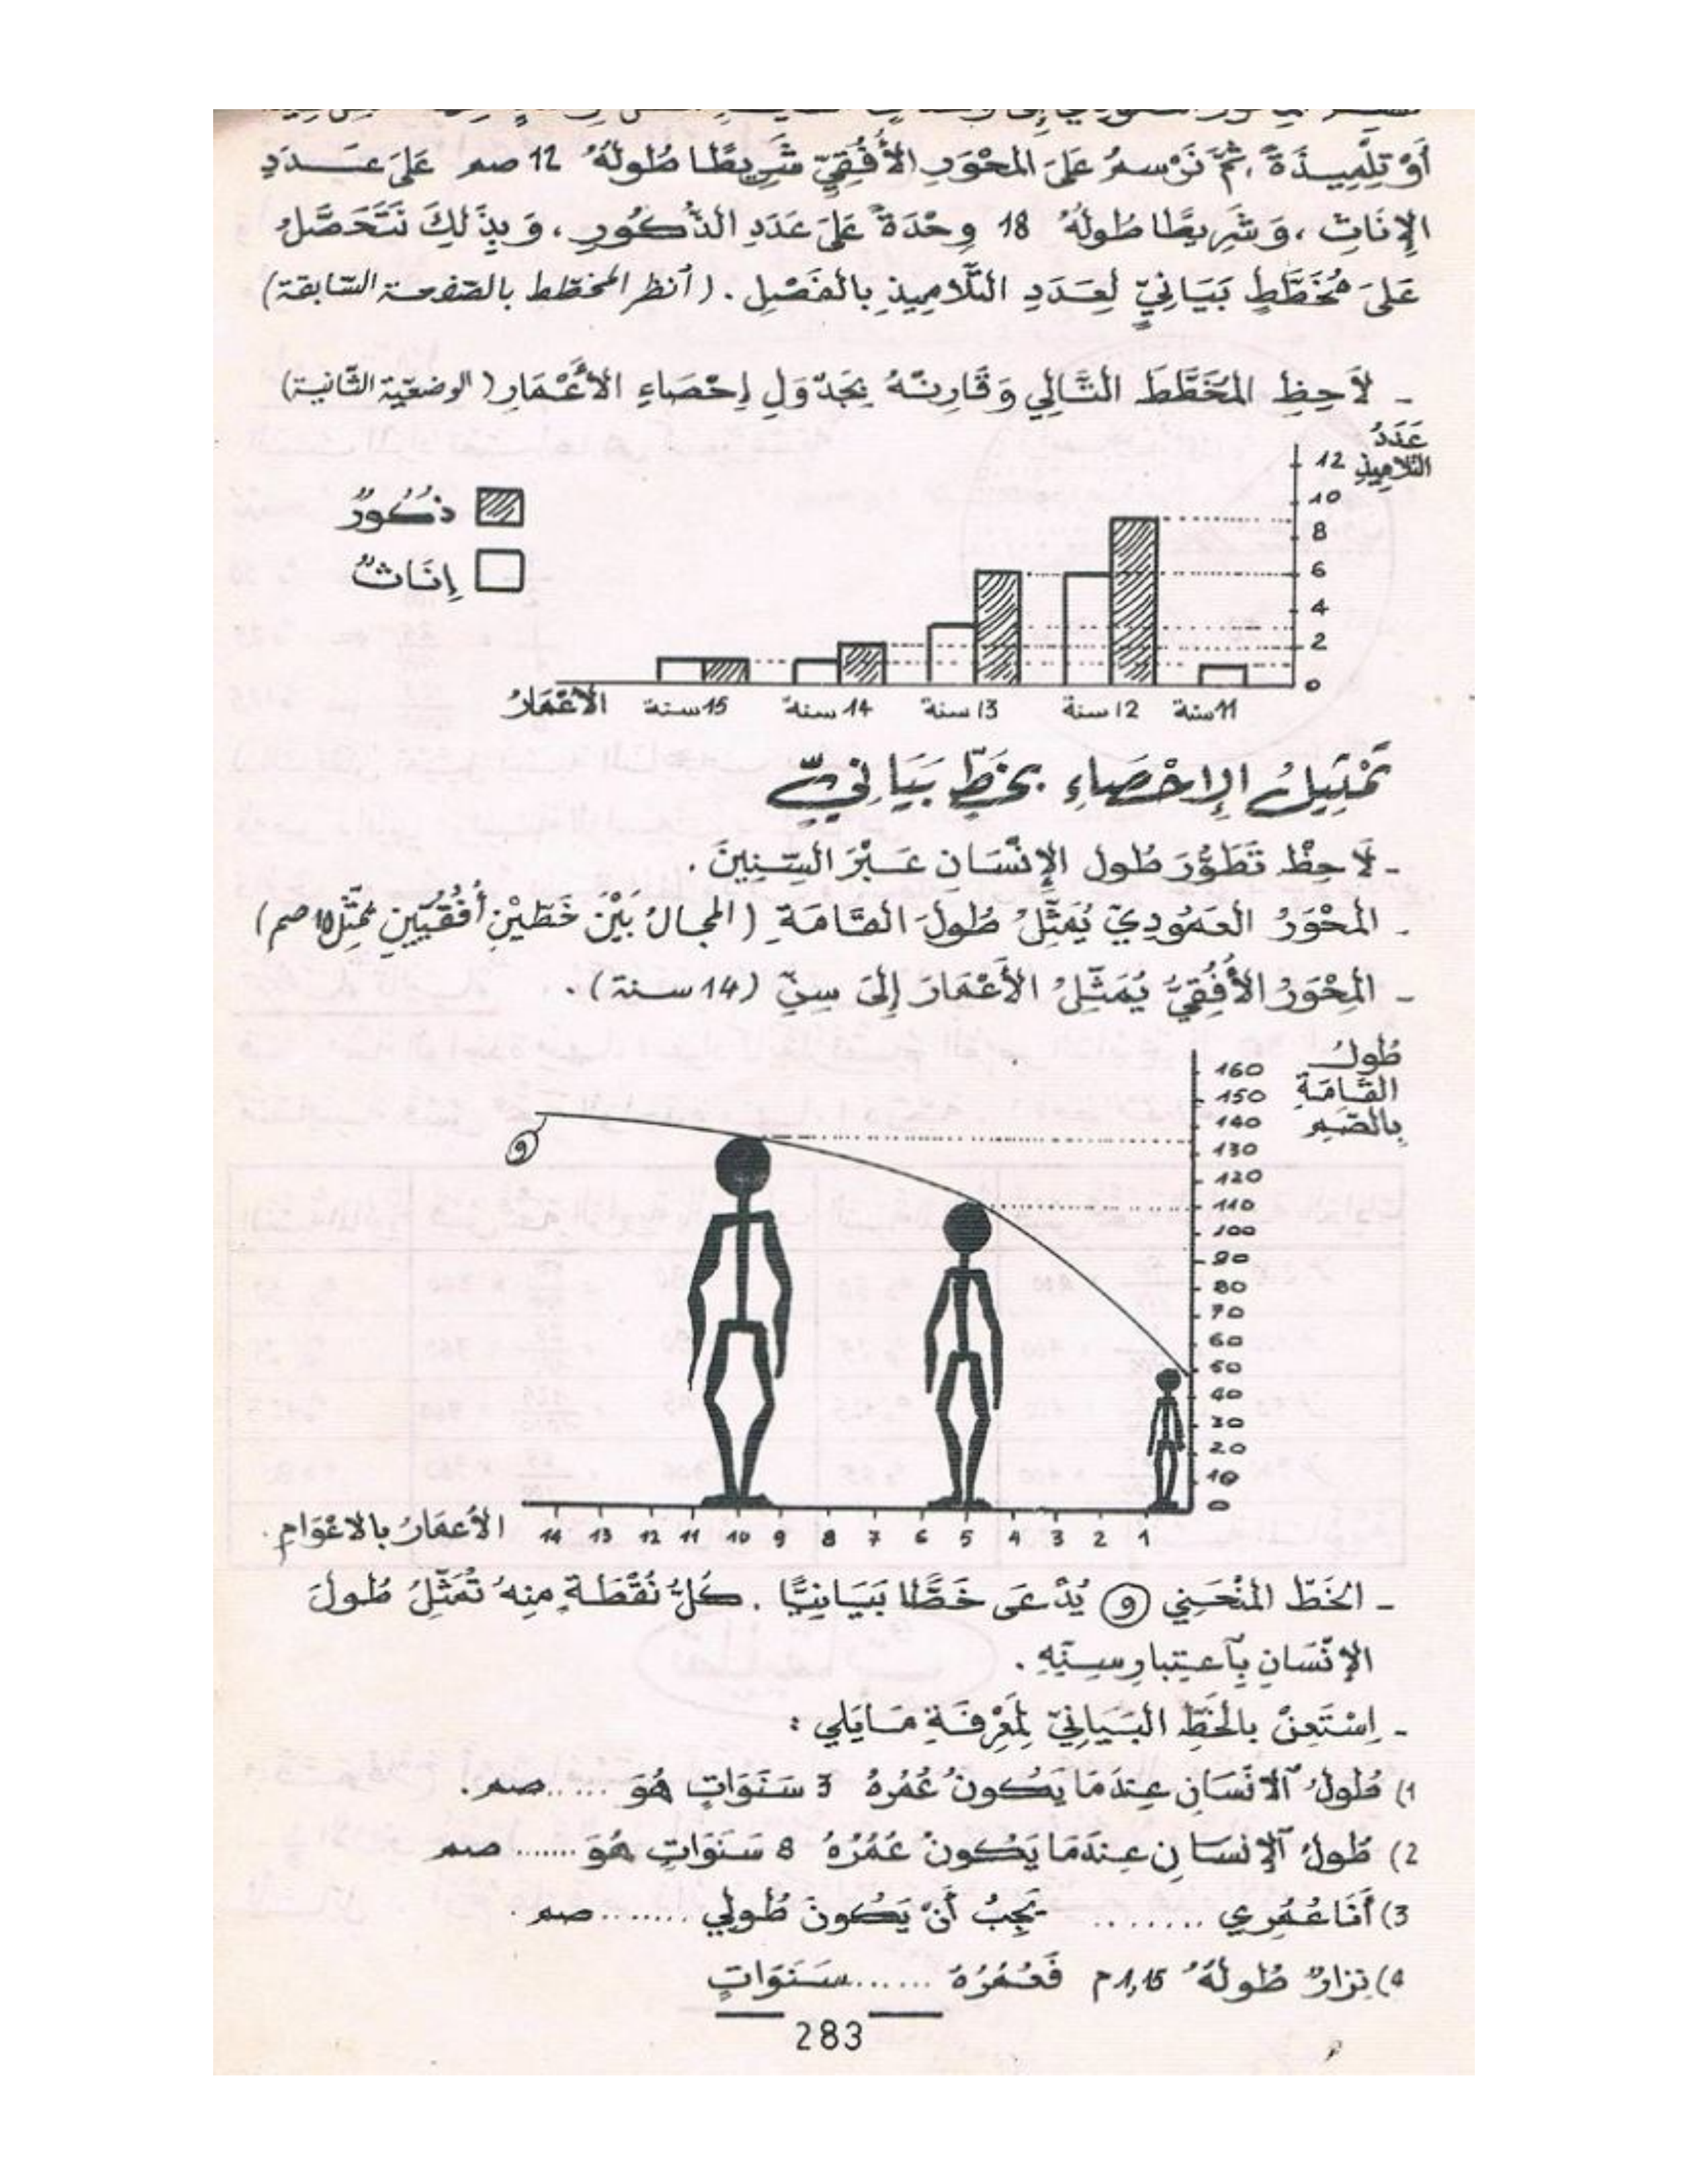 أَوْ تِلْمِيذَةً، ثُمَّ نَرْسمُ عَلَى المحْوَرِ الأُفُقِيّ شَرِيطًا طُولُهُ 12 صم عَلَى عَدَدِ
الإِنَاثِ، وَشَرِيطًا طُولُهُ 18 وِحْدَةً عَلَى عَدَدِ الذُّكُورِ، وَبِذَلِكَ نَتَحَصَّلُ
عَلَى مُخَطَّطٍ بَيَانِيٍّ لِعَدَدِ التَّلَامِيذِ بالفَصْلِ. (أنظر المخطط بالصّفحة السّابقة)
- لَاحِظِ المُخَطَّطَ التَّالِي وَقَارِنْهُ بِجَدْوَلِ إِحْصَاءِ الأَعْمَارِ (الوضعيّة الثّانية)
عَدَدُ
التلاميذِ
12
10
8
6
4
2
0
ذُكُورٌ
إِنَاثٌ
11 سنة
12 سنة
13 سنة
14 سنة
15 سنة
الأَعْمَارُ
تَمْثِيلُ الإِحْصَاءِ بِخَطٍّ بَيَانِيٍّ
- لَاحِظْ تَطَوُّرَ طُول الإِنْسَانِ عَبْرَ السِّنِينَ.
- المحْوَرُ العَمُودِيّ يُمَثِّلُ طُولَ القَامَةِ (المجالُ بَيْنَ خَطَّيْنِ أُفُقِيّينِ تمثّل 10 صم)
- المِحْوَرُ الأُفُقِيُّ يُمَثِّلُ الأَعْمَارَ إِلَى سِنِّ (14 سنة).
طُولُ
القَامَةِ
بِالصّمِ
160
150
140
130
120
110
100
90
80
70
60
50
40
30
20
10
0
و
1 2 3 4 5 6 7 8 9 10 11 12 13 14
الأعمَارُ بالاعْوَامِ.
- الخَطّ المُنْحَنِي و يُدْعَى خَطًّا بَيَانِيًّا. كُلُّ نُقْطَةٍ مِنهُ تُمَثِّلُ طُولَ
الإنْسَانِ بِآعتِبارِ سِنِّهِ.
- اِسْتَعِنْ بالخَطِّ البَيَانِيّ لِمَعْرِفَةِ مَا يَلِي:
1) طُولُ آلانْسَانِ عِندَمَا يَكُونُ عُمُرُهُ 3 سَنَوَاتٍ هُوَ ...... صم.
2) طُولُ آلإنسَانِ عِندَمَا يَكُونُ عُمُرُهُ 8 سَنَوَاتٍ هُوَ ....... صم
3) أَنَا عُمُرِي ........ يَجِبُ أَنْ يَكُونَ طُولِي ........ صم.
4) نِزارٌ طُولُهُ 1,15 م فَعُمُرُهُ ....... سَنَوَاتٍ
283